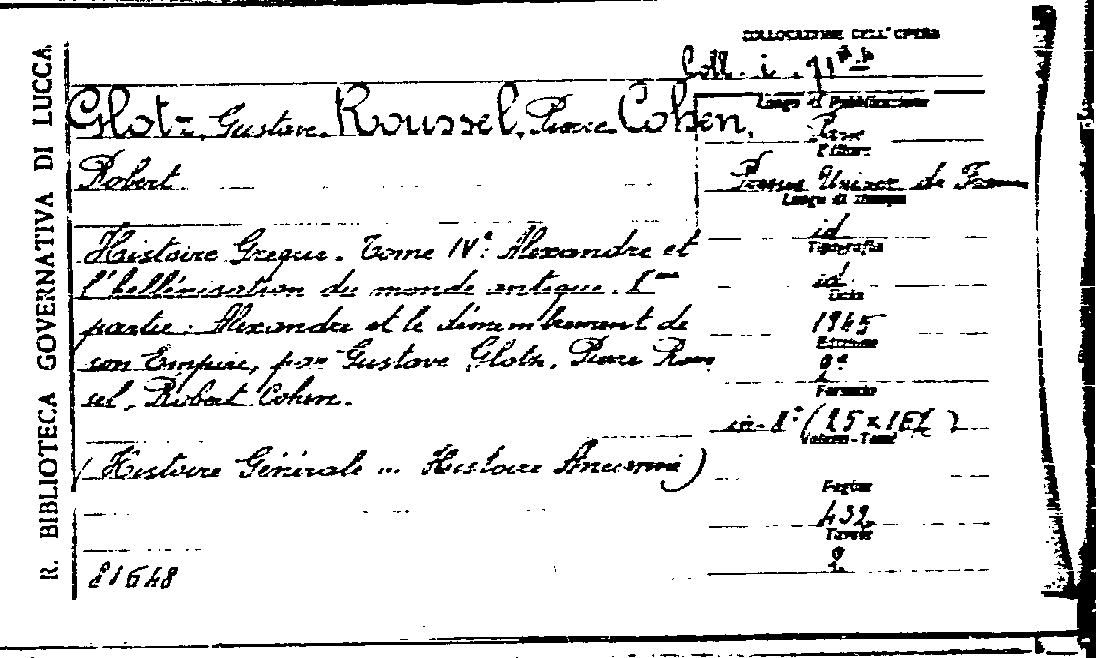 R. BIBLIOTECA GOVERNATIVA DI LUCCA
COLLOCAZIONE DELL'OPERA
Coll. i.
Glotz, Gustave. Roussel, Pierre. Cohen,
Robert
Histoire Greque. Tome IV: Alexandre et
l'hellénisation du monde antique. I
partie: Alexandre et le démembrement de
son Empire, par Gustave Glotz, Pierre Rous
sel, Robert Cohen.
(Histoire Générale ... Histoire Ancienne)
81648
Luogo di Pubblicazione
Paris
Editore
Presses Univer de France
Luogo di Stampa
id
Tipografia
id
Data
1945
Edizione
2ª
Formato
in-8°
Volumi-Tomi
Pagine
432
Tavole